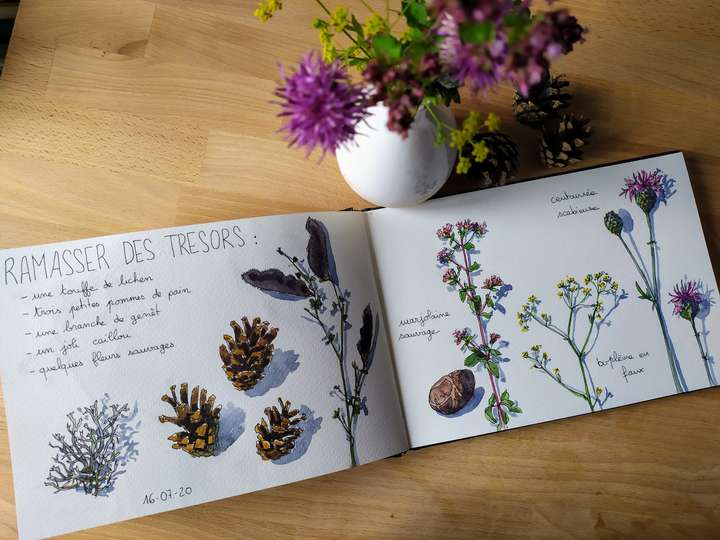 RAMASSER DES TRESORS :
- une touffe de lichen
- trois petites pommes de pain
- une branche de genêt
- un joli caillou
- quelques fleurs sauvages.
16-07-20
marjolaine
sauvage
centaurée
scabieuse
buplèvre en
faux